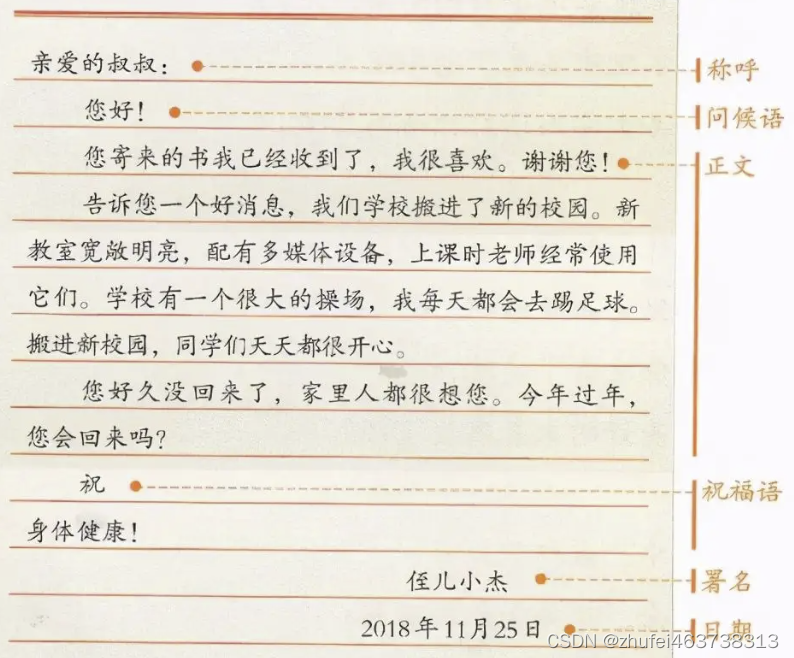 亲爱的叔叔： 称呼
您好！ 问候语
您寄来的书我已经收到了，我很喜欢。谢谢您！ 正文
告诉您一个好消息，我们学校搬进了新的校园。新
教室宽敞明亮，配有多媒体设备，上课时老师经常使用
它们。学校有一个很大的操场，我每天都会去踢足球。
搬进新校园，同学们天天都很开心。
您好久没回来了，家里人都很想您。今年过年，
您会回来吗？
祝 祝福语
身体健康！
侄儿小杰 署名
2018年11月25日 日期
CSDN @zhufei463738313